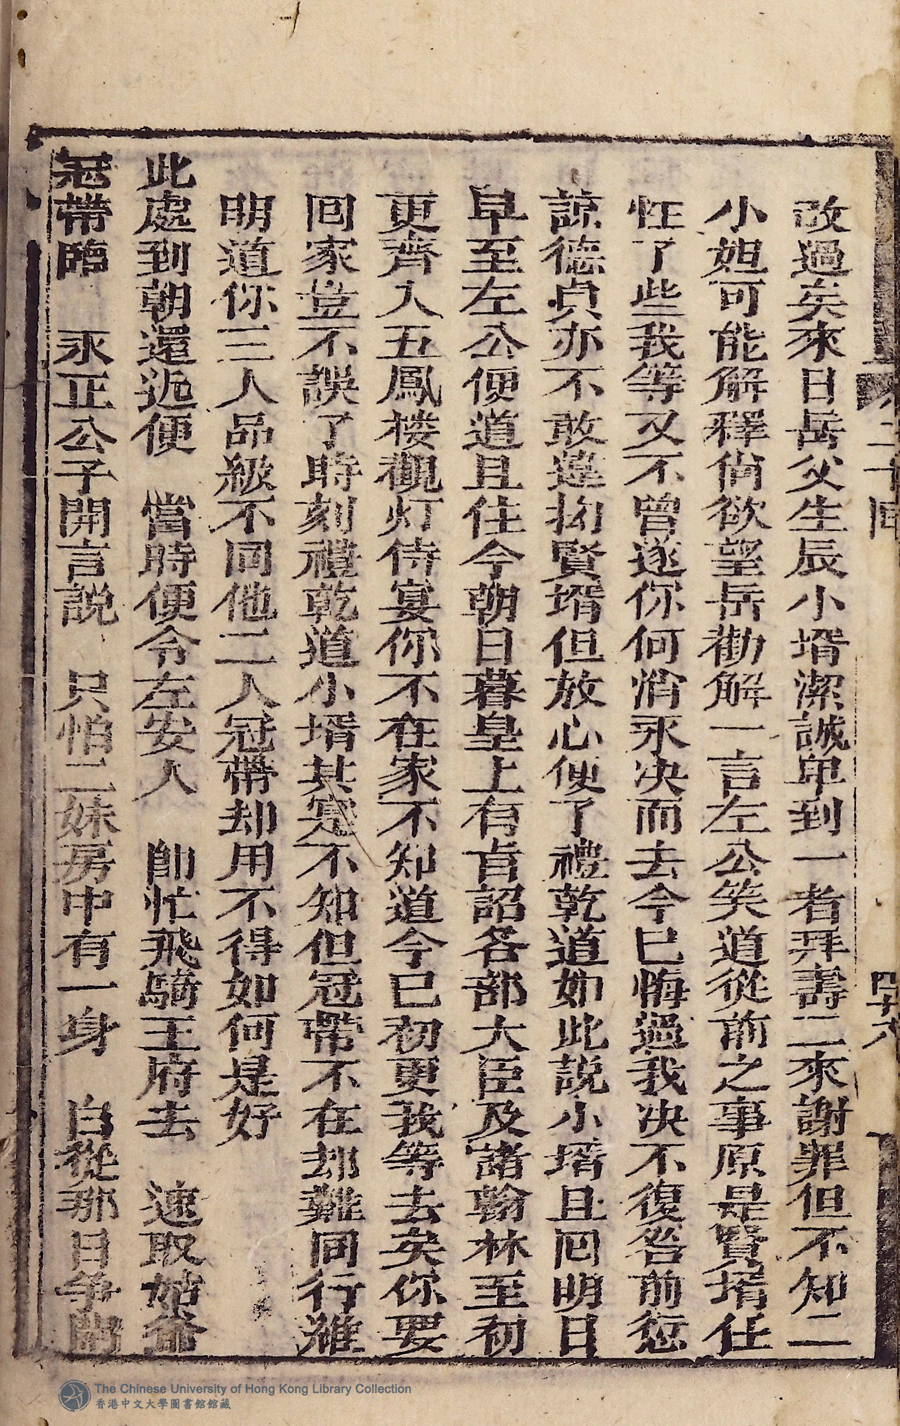 改過矣來日岳父生辰小壻潔誠卑到一者拜壽二來謝罪但不知二
小姐可能解釋倘欲望岳勸解一言左公笑道從前之事原是賢壻任
性了些我等又不曾遂你何悄永決而去今已悔過我决不復咎前愆
諒德貞亦不敢違拗賢壻但放心便了禮乾道如此説小壻且囘明日
早至左公便道且住今朝日暮皇上有旨詔各部大臣及諸翰林至初
更齊入五鳳楼觀灯侍宴你不在家不知道今已初更我等去矣你要
囘家豈不誤了時刻禮乾道小壻其寔不知但冠帶不在却難同行維
明道你三人品級不同他二人冠帶却用不得如何是好
此處到朝還近便 當時便令左安人 即忙飛騎王府去 速取姑爺
冠帶臨 永正公子開言説 只怕二妹房中有一身 自從那日争鬧
二十囘
The Chinese University of Hong Kong Library Collection
香港中文大學圖書館館藏